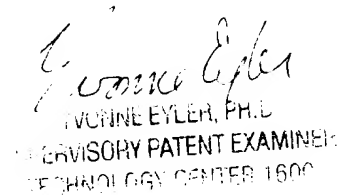 Yvonne Eyler
YVONNE EYLER, PH.D
ERVISORY PATENT EXAMINER
TECHNOLOGY CENTER 1600